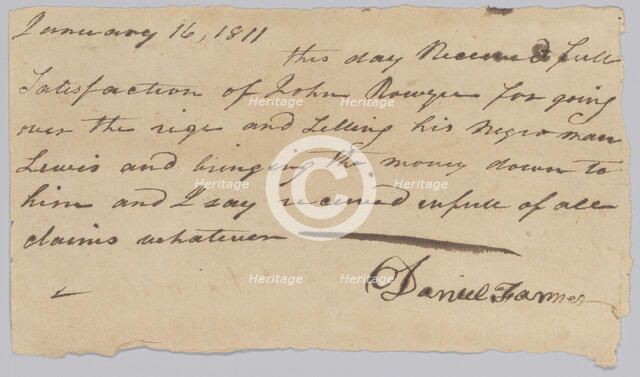 January 16, 1811
this day Received full
Satesfaction of John Rouzee for going
over the rige and Selling his Negro man
Lewis and bringing the money down to
him and I say received in full of all
claims whatever
Daniel Farmer
Heritage
Heritage
Heritage
Heritage
Heritage
Heritage
Heritage
Heritage
©